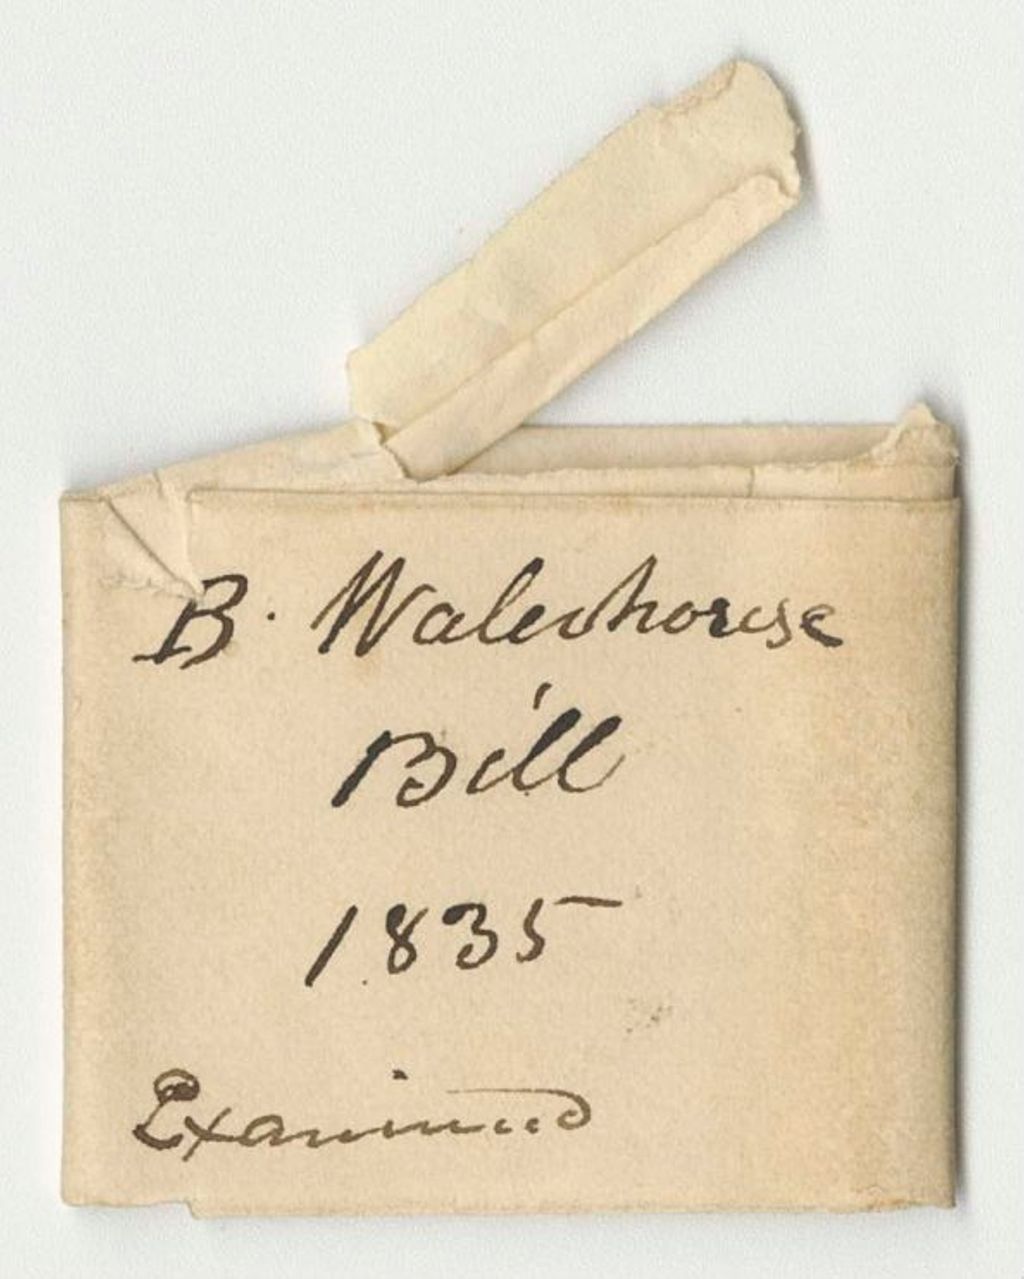 B. Waterhouse
Bill
1835
Examined